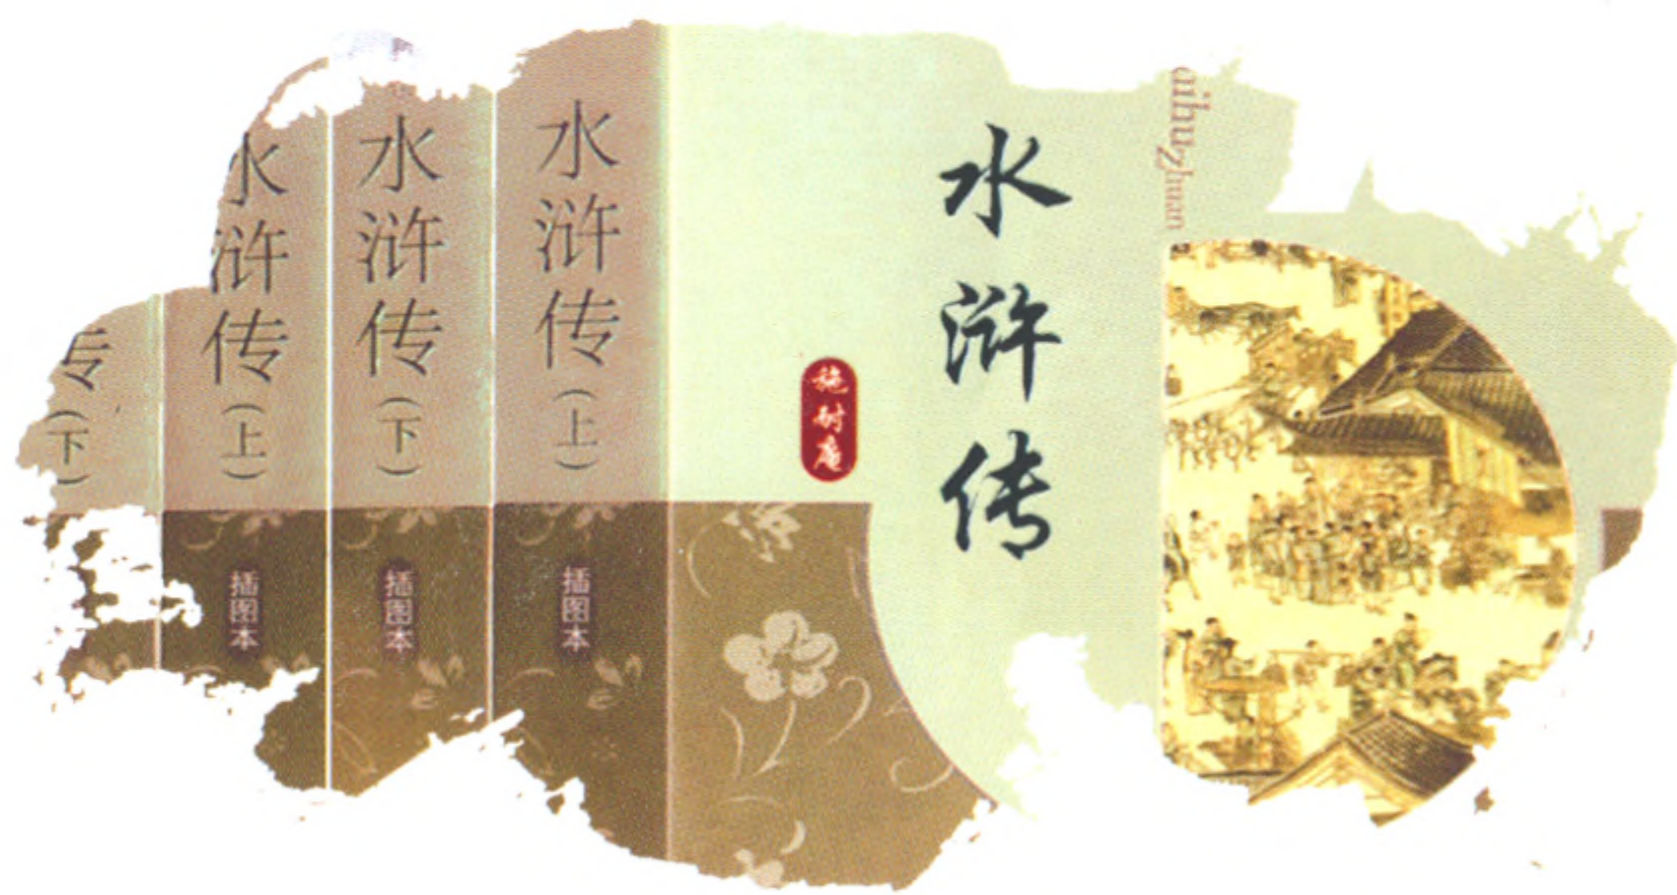 传(下)
水浒传(上)
插图本
水浒传(下)
插图本
水浒传(上)
插图本
施耐庵
水浒传
uihuzhuan